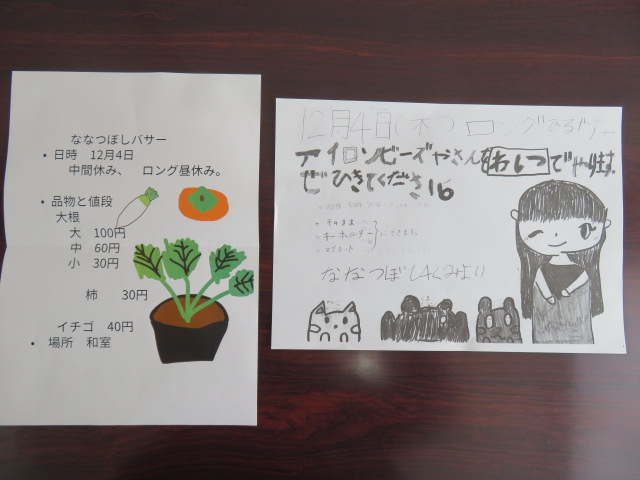 ななつぼしバザー
• 日時 12月4日
中間休み、 ロング昼休み。
• 品物と値段
大根
大 100円
中 60円
小 30円
柿 30円
イチゴ 40円
• 場所 和室
12月4日(木)ロングひるやすみ
アイロンビーズやさんを わしつ でやります。
ぜひきてください
そのまま
キーホルダー にできます。
マグネット
ななつぼし4くみより